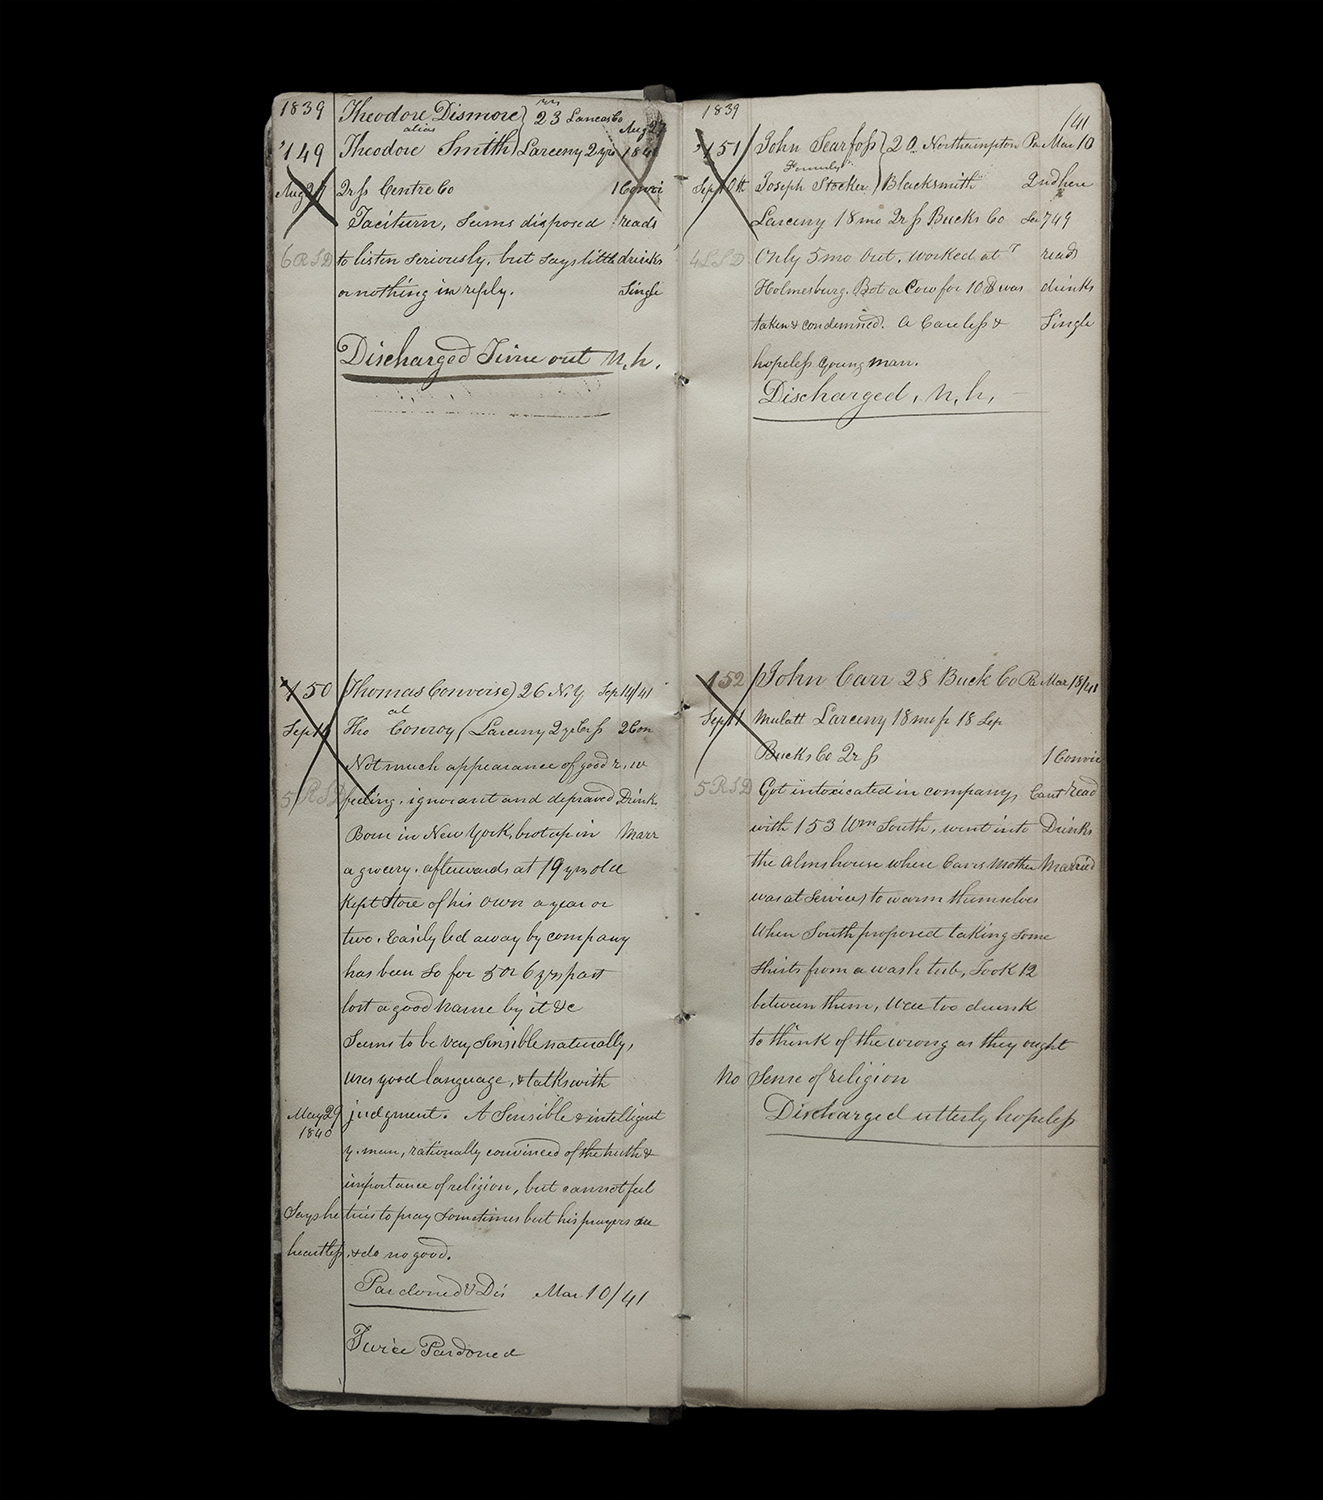 1839 Theodore Dismore) yrs 23 Lancas Co Aug 27
alias
1149 Theodore Smith) Larceny 2 yrs 1841
Aug 27 Qr ss Centre Co 1 Convi
Taciturn, Seems disposed reads
6 R S D to listen seriously, but says little drinks
or nothing in reply. Single
Discharged Time out N. h.
1150 Thomas Converse) 26 N.Y Sep 14/41
al
Sep Tho Conroy ( Larceny 2 yrs 2 Con
Not much appearance of good r. w
5 R S D feeling, ignorant and depraved Drink
Born in New York, brot up in Marr
a grocery. afterwards at 19 yrs old
kept Store of his own a year or
two. Easily led away by company
has been so for 5 or 6 yrs past
lost a good name by it &c
Seems to be very Sensible naturally,
uses good language, & talks with
May 29 judgment. A Sensible & intelligent
1840
y. man, rationally convinced of the truth &
importance of religion, but cannot feel
Says he tries to pray sometimes but his prayers are
heartless, & do no good.
Pardoned & Dis Mar 10/41
Twice Pardoned
1839
/41
1151 John Searfoss) 20 Northampton Pa Mar 10
Formerly
Sep 10th Joseph Stocker) Blacksmith 2nd here
Larceny 18 mo Qr ss Bucks Co See 749
4 L S D Only 5 mo out. worked at reads
Holmesburg. Bot a Cow for 10 D was drinks
taken & condemned. A Careless & Single
hopeless young man.
Discharged, N. h,
1152 John Carr 28 Buck Co Pa Mar 18/41
Sep 11 Mulatt Larceny 18 mo fr 18 Sep
Bucks Co Qr ss 1 Convic
5 R S D Got intoxicated in company, Cant read
with 153 Wm South, went into Drinks
the Almshouse where Carrs Mother Married
was at service) to warm themselves
When South proposed taking some
Shirts from a wash tub, Took 12
between them, Was too drunk
to think of the wrong as they ought
No Sense of religion
Discharged utterly hopeless